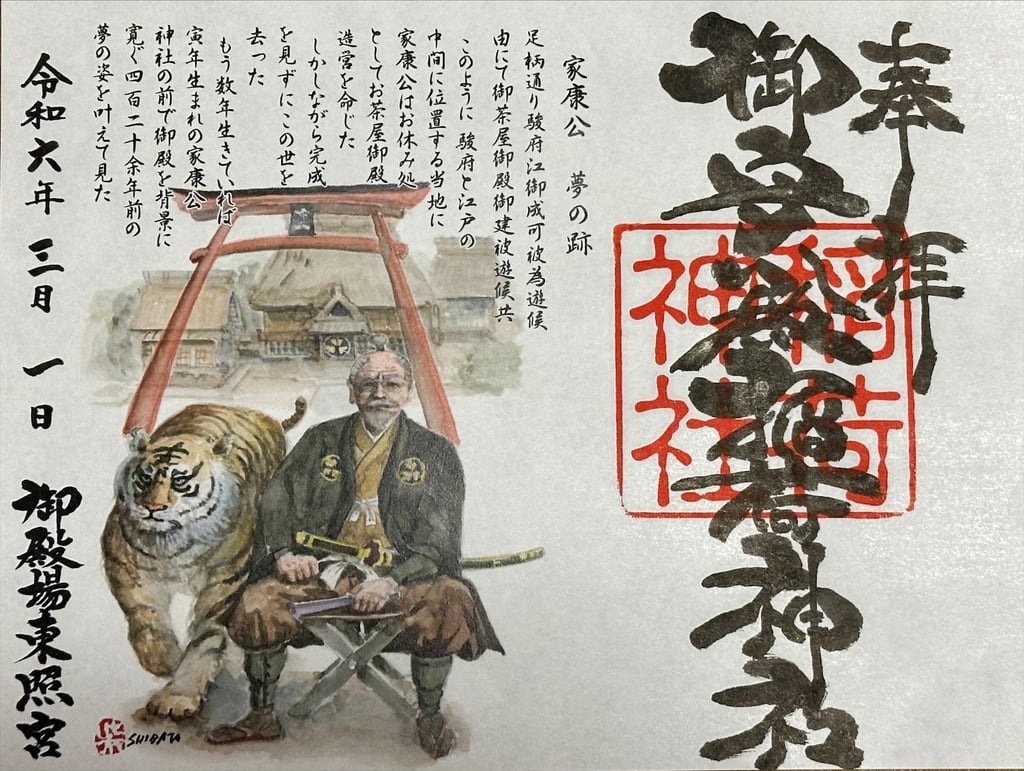 奉拝
御
稲荷神社
稲荷
神社
家康公 夢の跡
足柄通り駿府江御成可被為遊候
由にて御茶屋御殿御建被遊候共
このように 駿府と江戸の
中間に位置する当地に
家康公はお休み処
としてお茶屋御殿
造営を命じた
しかしながら完成
を見ずにこの世を
去った
もう数年生きていれば
寅年生まれの家康公
神社の前で御殿を背景に
寛ぐ四百二十余年前の
夢の姿を叶えて見た
令和六年 三月 一日 御殿場東照宮
SHIBATA